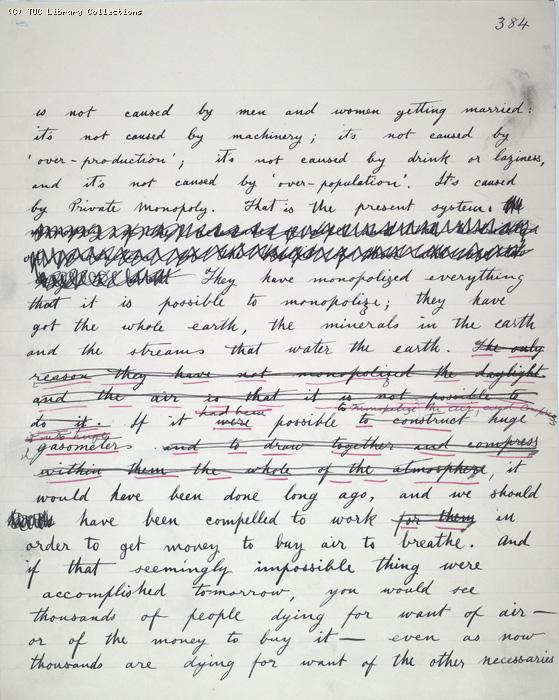 (C) TUC Library Collections
384
is not caused by men and women getting married:
it's not caused by machinery; it's not caused by
'over-production'; it's not caused by drink or laziness,
and it's not caused by 'over-population'. It's caused
by Private Monopoly. That is the present system.
They have monopolized everything
that it is possible to monopolize; they have
got the whole earth, the minerals in the earth
and the streams that water the earth. The only
reason they have not monopolized the daylight
and the air is that it is not possible to
had been to monopolize the air, and
do it. If it were possible to construct huge
gasometers and to draw together and compress
within them the whole of the atmosphere, it
would have been done long ago, and we should
have been compelled to work for them in
order to get money to buy air to breathe. And
if that seemingly impossible thing were
accomplished tomorrow, you would see
thousands of people dying for want of air—
or of the money to buy it— even as now
thousands are dying for want of the other necessaries